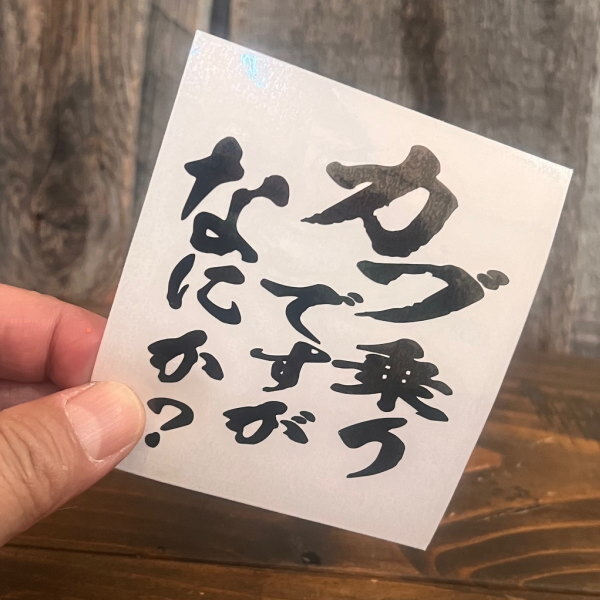 カブ乗り
ですが
なにか?